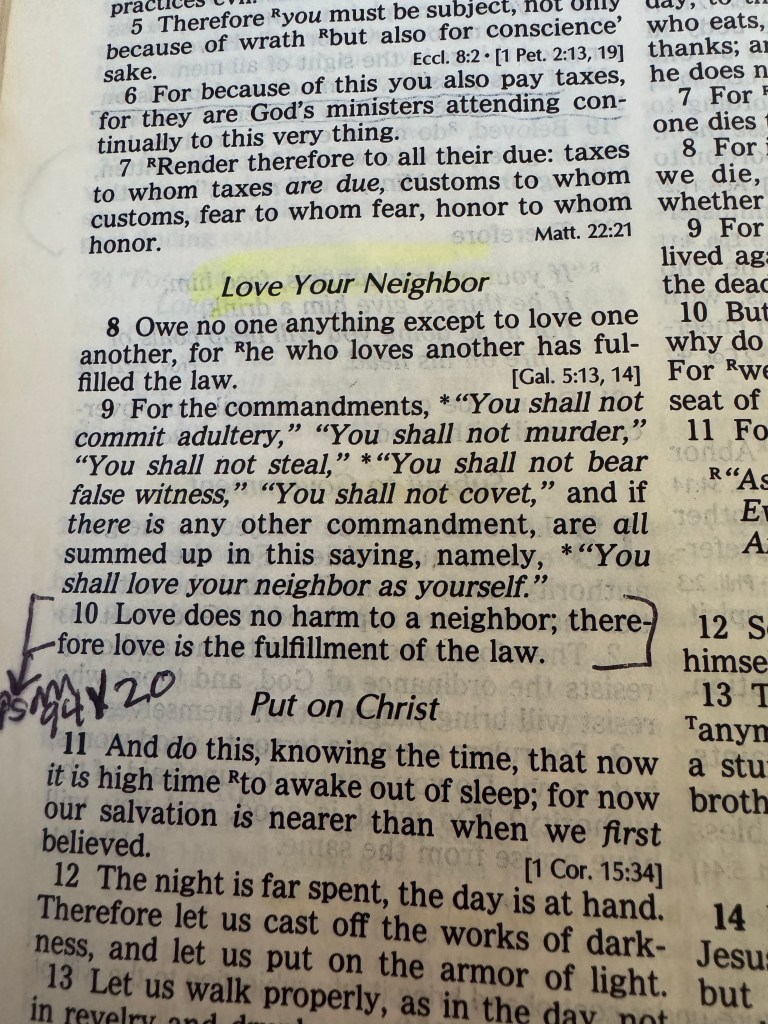 practices evil.
5 Therefore ᴿyou must be subject, not only
because of wrath ᴿbut also for conscience’
sake. Eccl. 8:2 • [1 Pet. 2:13, 19]
6 For because of this you also pay taxes,
for they are God’s ministers attending con-
tinually to this very thing.
7 ᴿRender therefore to all their due: taxes
to whom taxes are due, customs to whom
customs, fear to whom fear, honor to whom
honor. Matt. 22:21
Love Your Neighbor
8 Owe no one anything except to love one
another, for ᴿhe who loves another has ful-
filled the law. [Gal. 5:13, 14]
9 For the commandments, *“You shall not
commit adultery,” “You shall not murder,”
“You shall not steal,” *“You shall not bear
false witness,” “You shall not covet,” and if
there is any other commandment, are all
summed up in this saying, namely, *“You
shall love your neighbor as yourself.”
10 Love does no harm to a neighbor; there-
fore love is the fulfillment of the law.
94 V 20
Put on Christ
11 And do this, knowing the time, that now
it is high time ᴿto awake out of sleep; for now
our salvation is nearer than when we first
believed. [1 Cor. 15:34]
12 The night is far spent, the day is at hand.
Therefore let us cast off the works of dark-
ness, and let us put on the armor of light.
13 Let us walk properly, as in the day, not
in revelry and
who eats,
thanks;
he does
7 For
one dies
8 For
we die,
whether
9 For
lived
the dead
10 But
why do
For ᴿwe
seat of
11
ᴿ“As
12
13
ᵀ
a
14
Jesus
but